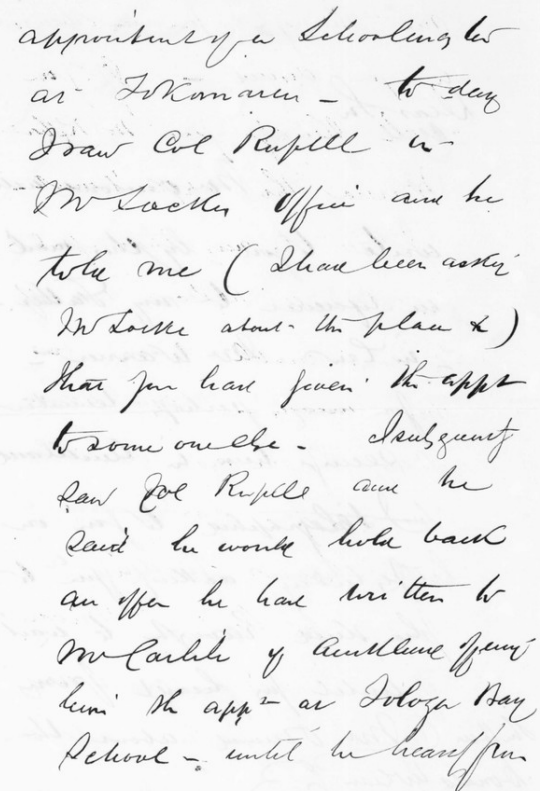 appointment of a Schoolmaster
at Tokomaru - to day
I saw Col Russell in
Mr Lockes office and he
told me (I had been asking
Mr Locke about the place &)
that you had given the appt
to some one else - I subsequently
saw Col Russell and he
said he would hold back
an offer he had written to
Mr Carlile of Auckland offering
him the appt at Tologa Bay
School - until he heard from